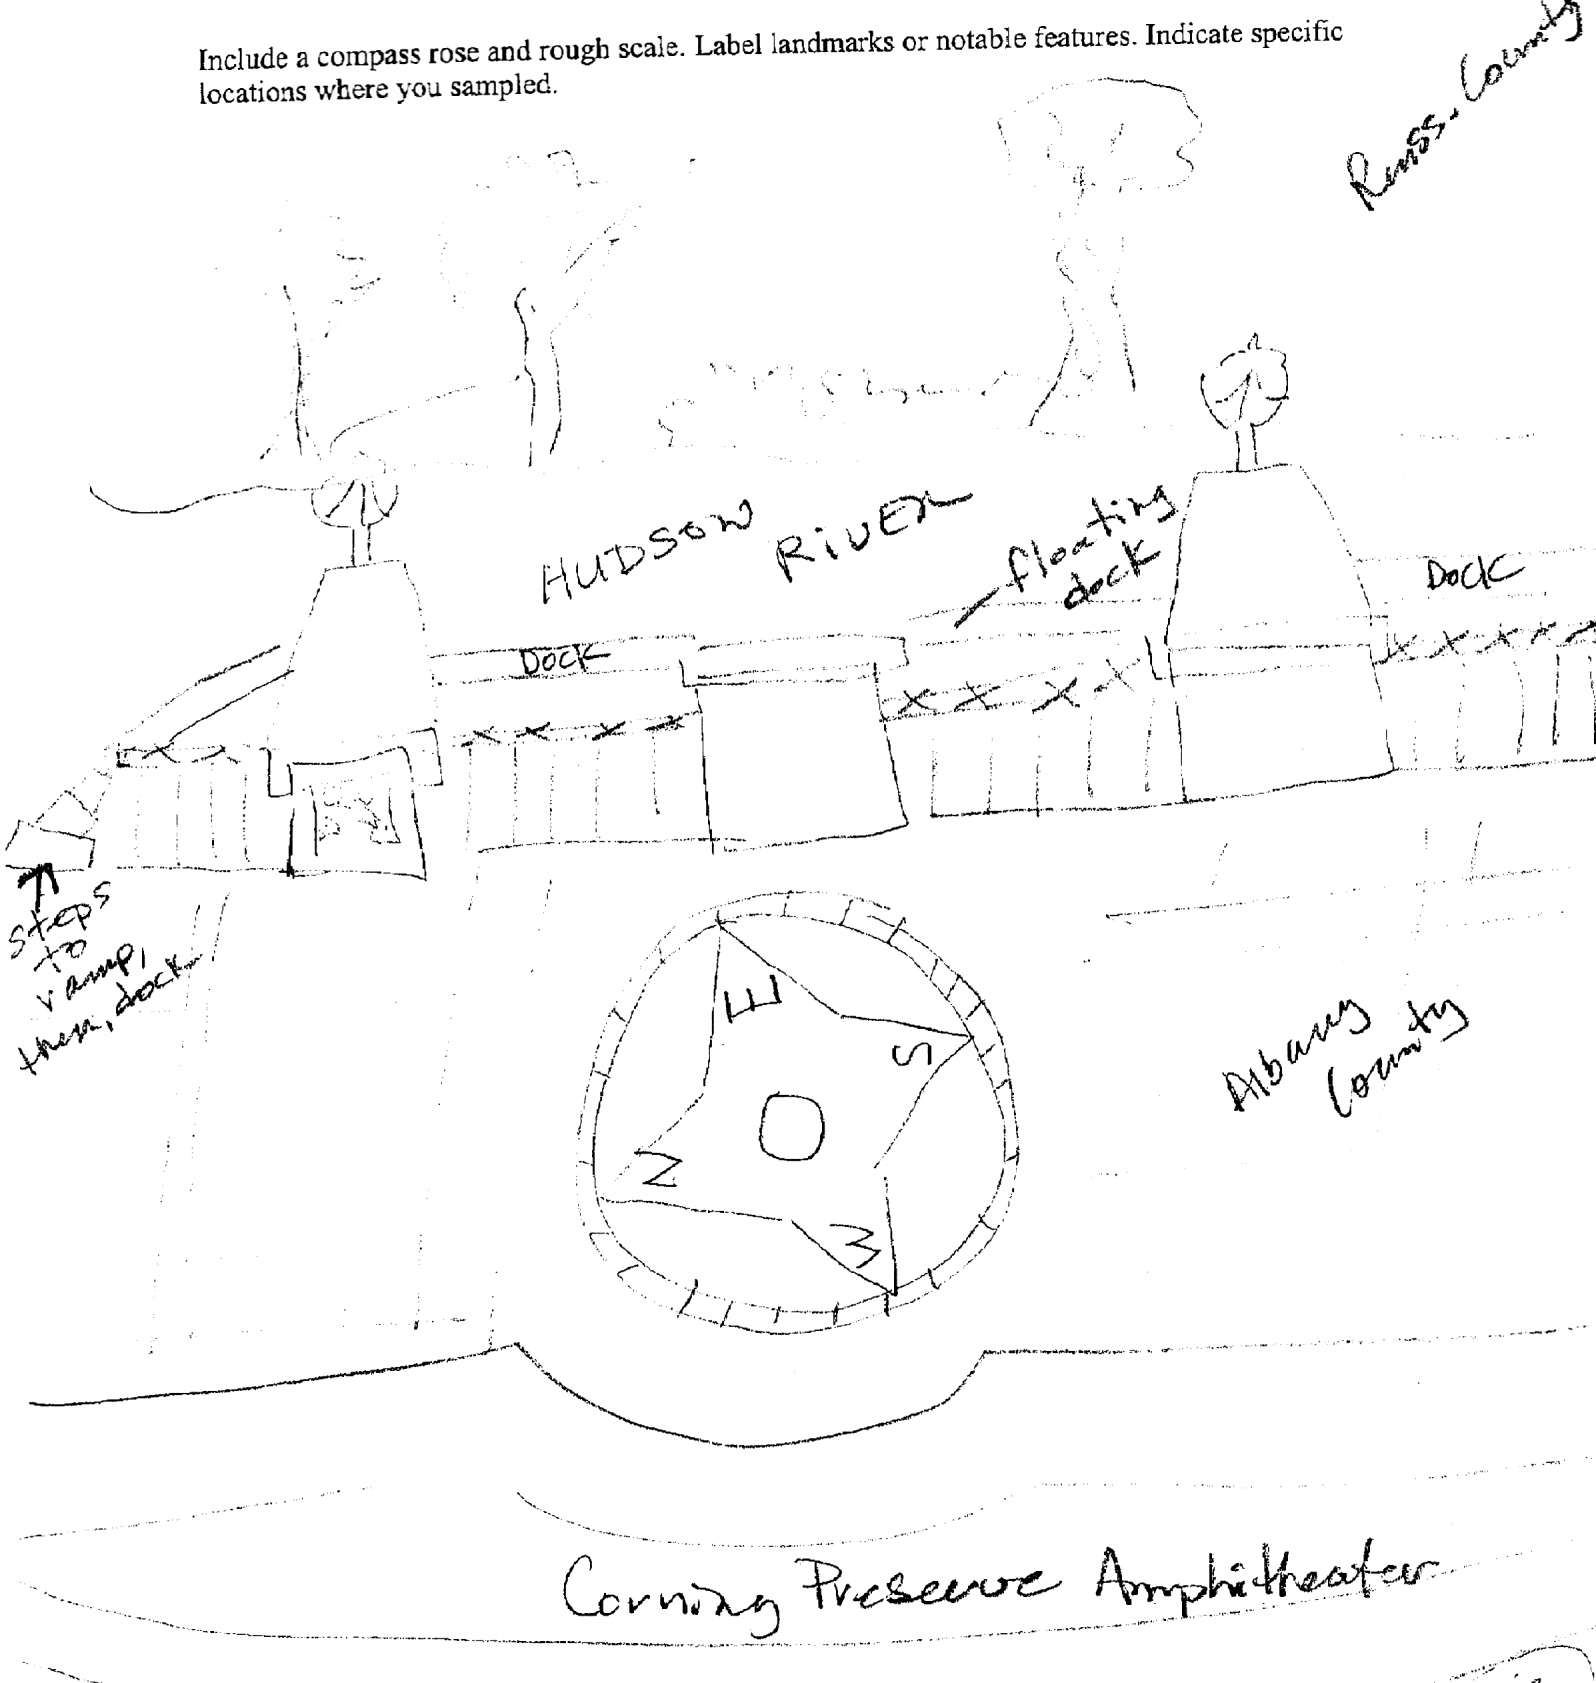 Include a compass rose and rough scale. Label landmarks or notable features. Indicate specific
locations where you sampled.
Renss. County
HUDSON RIVER
floating
dock
DOCK
DOCK
steps
to
ramp,
then, dock
E
S
N
W
Albany
County
Corning Preserve Amphitheater